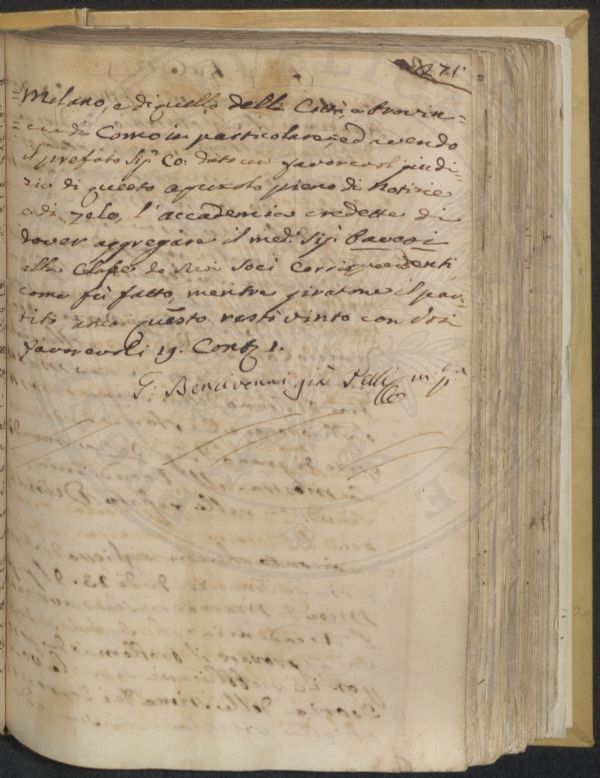 271
Milano, e di quello della Città, e Provin=
=cia di Como in particolare; ed avendo
il prefato Sig.r Co: dato un favorevol giudi=
zio di questo apuscolo pieno di notizie
e di zelo, l'accademia credette di
dover aggregare il med.o Sig.r
alla Classe de suoi Soci Corrispondenti
come fù fatto, mentre giratone il par=
tito anco questo restò vinto con Voti
favorevoli 19. Contr. 1.
G. Bencivenni già Pelli